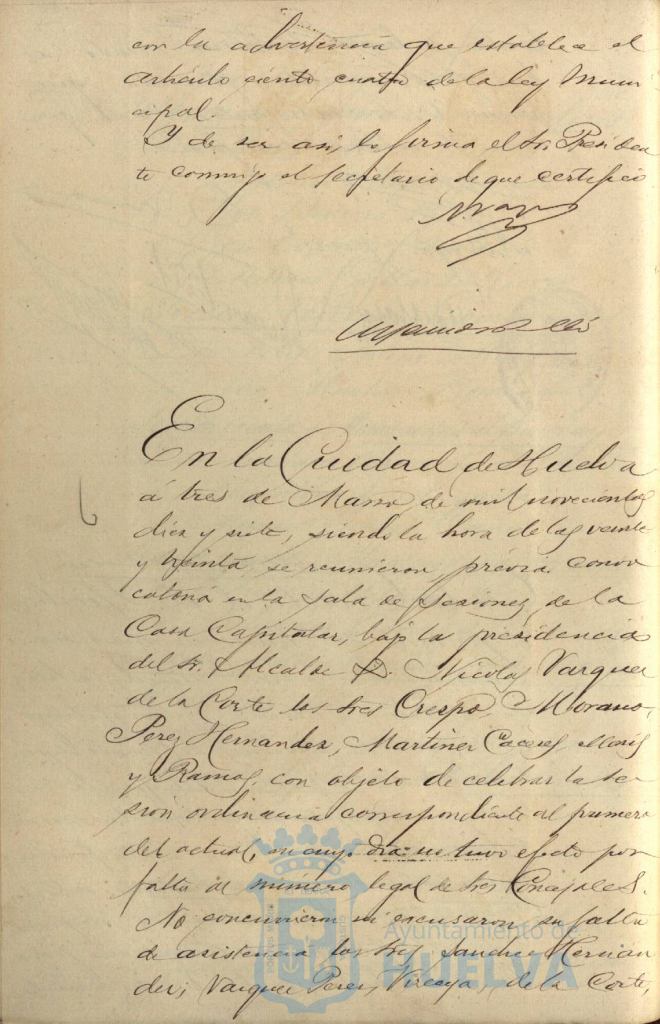 con la advertencia que establece el
artículo ciento cuatro de la ley Muni
cipal.
Y de ser así, lo firma el Sr. Presiden
te conmigo el Secretario de que certifico
En la Ciudad de Huelva
á tres de Marzo de mil novecientos
diez y siete, siendo la hora de las veinte
y treinta se reunieron prévia convo
catoria en la Sala de Sesiones de la
Casa Capitular, bajo la presidencia
del Sr. Alcalde D. Nicolas Vazquez
de la Corte los Sres Crespo, Morano,
Perez Hernandez, Martinez Caceres,
y Ramos, con objeto de celebrar la se
sion ordinaria correspondiente al primero
del actual, en cuyo dia no tuvo efecto por
falta de número legal de Sres Concejales.
No concurrieron ni escusaron su falta
de asistencia los Sres Sanchez Hernan
dez, Vazquez Perez, Vizcaya, de la Corte,
Ayuntamiento de
HUELVA